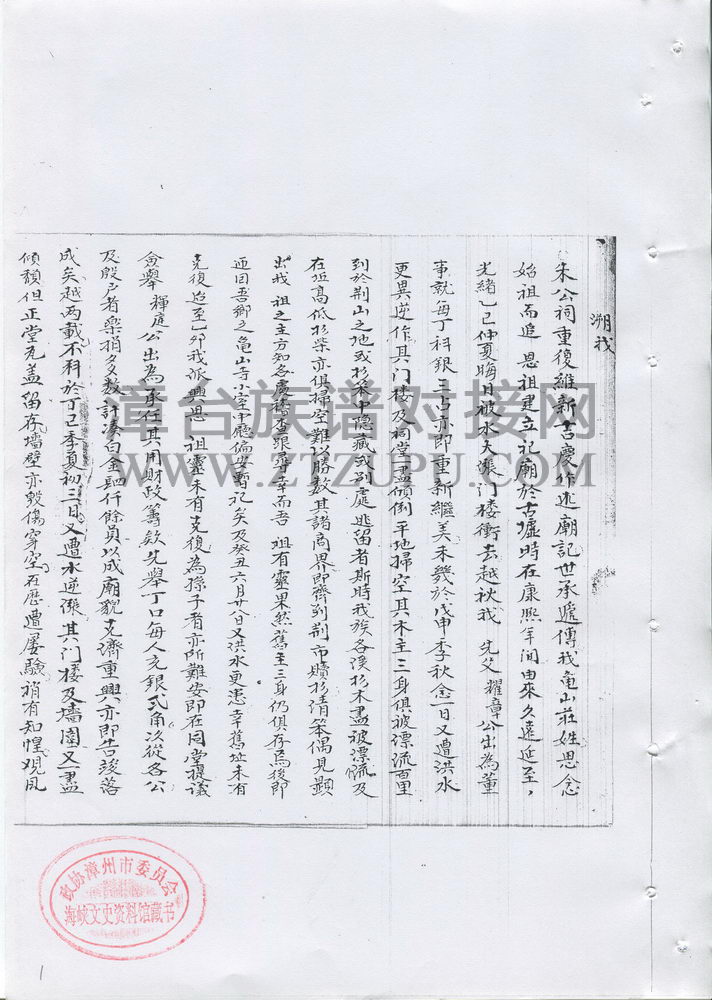 溯我
朱公祠重復維新吉慶作述廟記世承遞傳我龜山莊姓思念
始祖而追 思祖建立祀廟於古墟時在康熙年间由來久遠延至,
光緒乙巳仲夏晦日被水大漲门楼衝去越秋我 先父 耀章公出為董
事就每丁科銀三占亦即重新繼美未幾於戊申季秋念一日又遭洪水
更異逆作其门楼及祠堂盡傾倒平地掃空其木主三身俱被漂流百里
到於荆山之地或杉柴中隐藏或别處逃留者斯時我族各溪杉木盡被漂流及
在坵高低杉柴亦俱掃空難以勝数其諸局界即齊到荆市贖杉倩笨偶見顯
出我 祖之主方知各處稽查跟尋幸而吾 祖有靈果然舊主三身仍俱存焉後即
迎囬吾鄉之龟山寺小室中廳偏安暫祀矣及癸丑六月廿八日又洪水更患幸舊址未有
克復迨至乙卯我派興思 祖靈未有克復為孫子者亦所難安即在同堂提議
僉舉 輝庭公出為承任其用財政籌欵先舉丁口每人充銀弍角次從各公
及殷户者樂捐多数計湊白金四仟餘員以成廟貌克濟重興亦即告竣落
成矣越两載不料於丁巳季夏初三日又遭水逆漲其门楼及墙圍又一盡
傾頹但正堂瓦盖留存墙壁亦毁傷穿空在歷遭屡驗稍有知惶观風
漳台族谱对接网
WWW.ZTZUPU.COM
政协漳州市委员会
海峡文史资料馆藏书
1